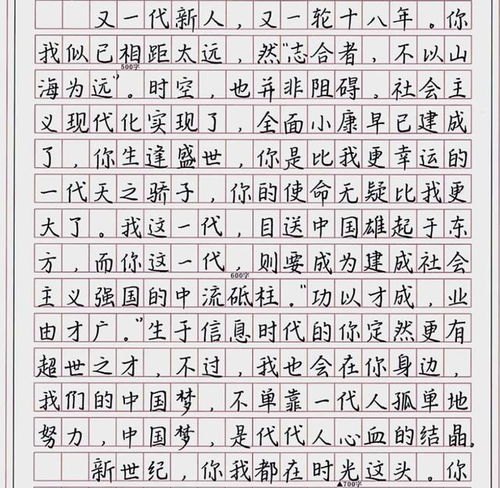 又一代新人，又一轮十八年。你
我似已相距太远，然“志合者，不以山
500字
海为远”。时空，也并非阻碍。社会主
义现代化实现了，全面小康早已建成
了，你生逢盛世，你是比我更幸运的
一代天之骄子，你的使命无疑比我更
大了。我这一代，目送中国雄起于东
方，而你这一代，则要成为建成社会
600字
主义强国的中流砥柱。“功以才成，业
由才广。”生于信息时代的你定然更有
超世之才，不过，我也会在你身边，
我们的中国梦，不单靠一代人孤单地
努力，中国梦，是代代人心血的结晶。
新世纪，你我都在时光这头。你
▲700字